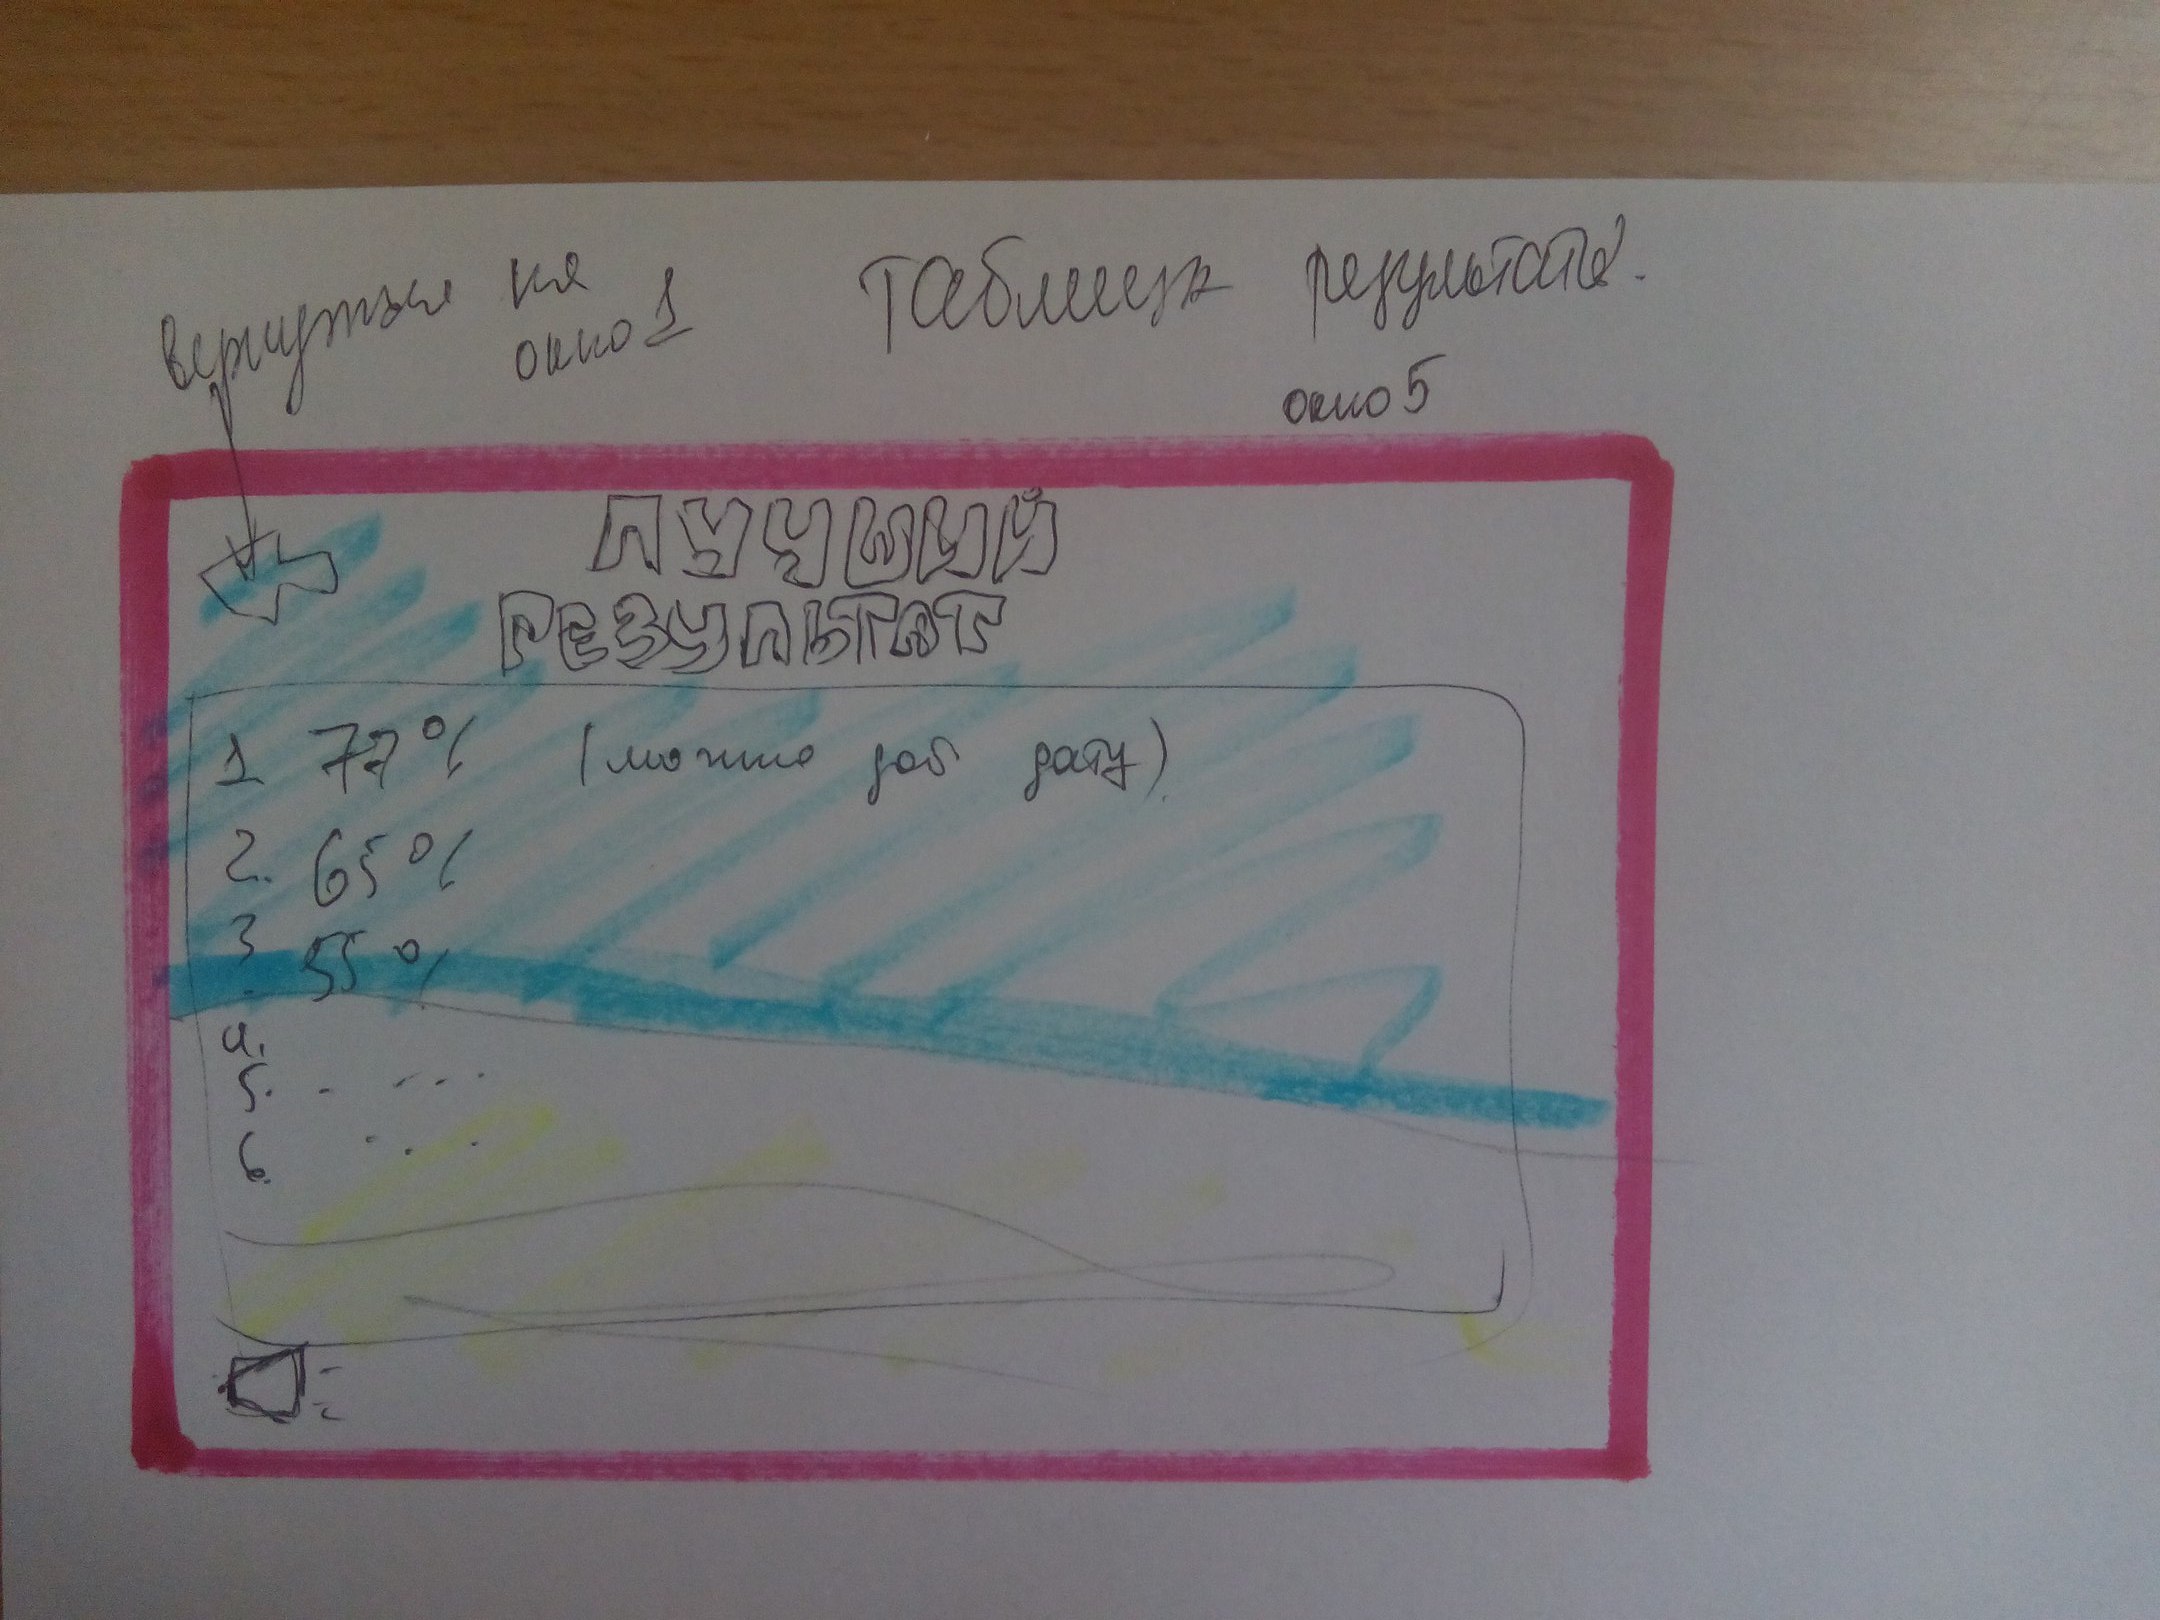 вернуться на
окно 1
Таблица результатов.
окно 5
ЛУЧШИЙ
РЕЗУЛЬТАТ
1 77% (можно доб дату)
2. 65%
3. 55%
4.
5.
6.